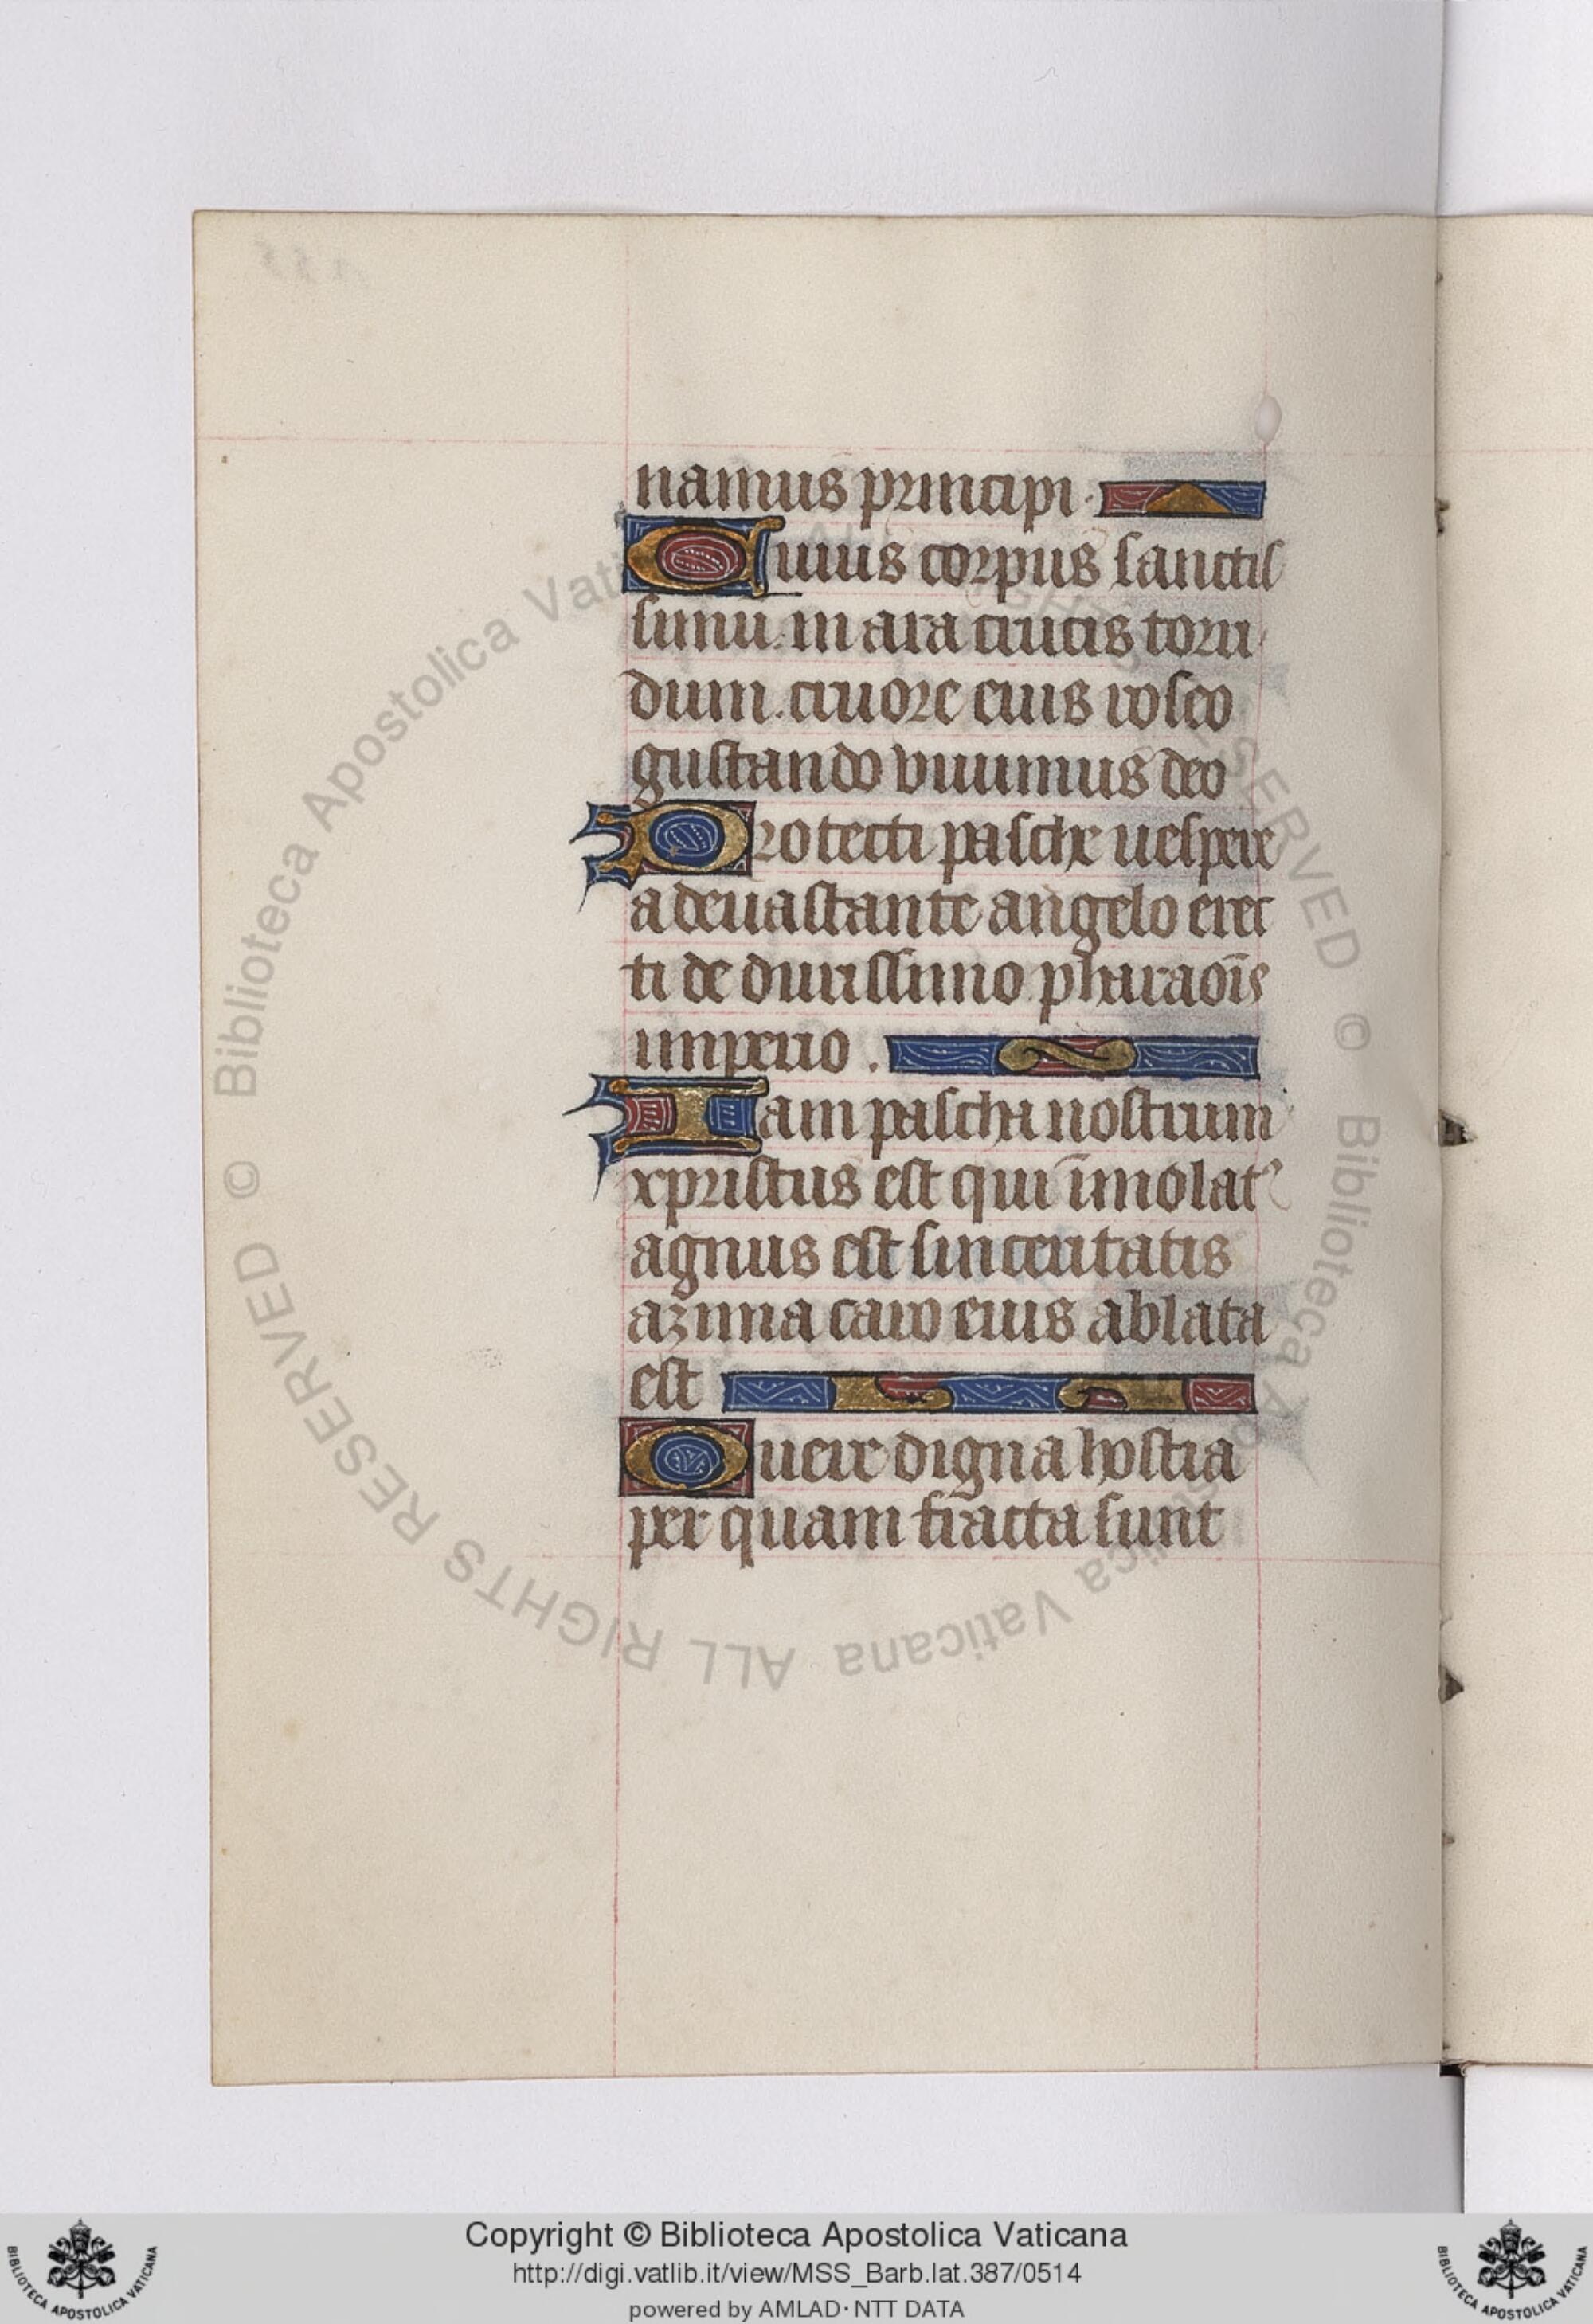 namus principi.
Cuius corpus sanctis
simū. in ara crucis torri
dum. cruore eius roseo
gustando viuimus deo
Protecti pasche uespere
a deuastante angelo erec
ti de durissimo pharaoīs
imperio.
Iam pascha nostrum
xpristus est qui īmolat᷒
agnus est sinceritatis
azima caro eius ablata
est
O uere digna hostia
per quam fracta sunt
© Biblioteca Apostolica Vaticana ALL RIGHTS RESERVED
© Biblioteca Apostolica Vaticana ALL RIGHTS RESERVED
Copyright © Biblioteca Apostolica Vaticana
http://digi.vatlib.it/view/MSS_Barb.lat.387/0514
powered by AMLAD·NTT DATA
BIBLIOTECA APOSTOLICA VATICANA
BIBLIOTECA APOSTOLICA VATICANA